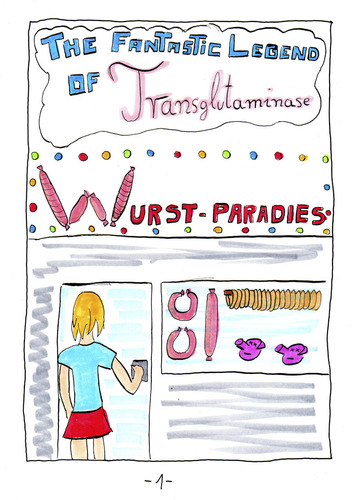 THE FANTASTIC LEGEND
OF Transglutaminase
WURST-PARADIES
-1-